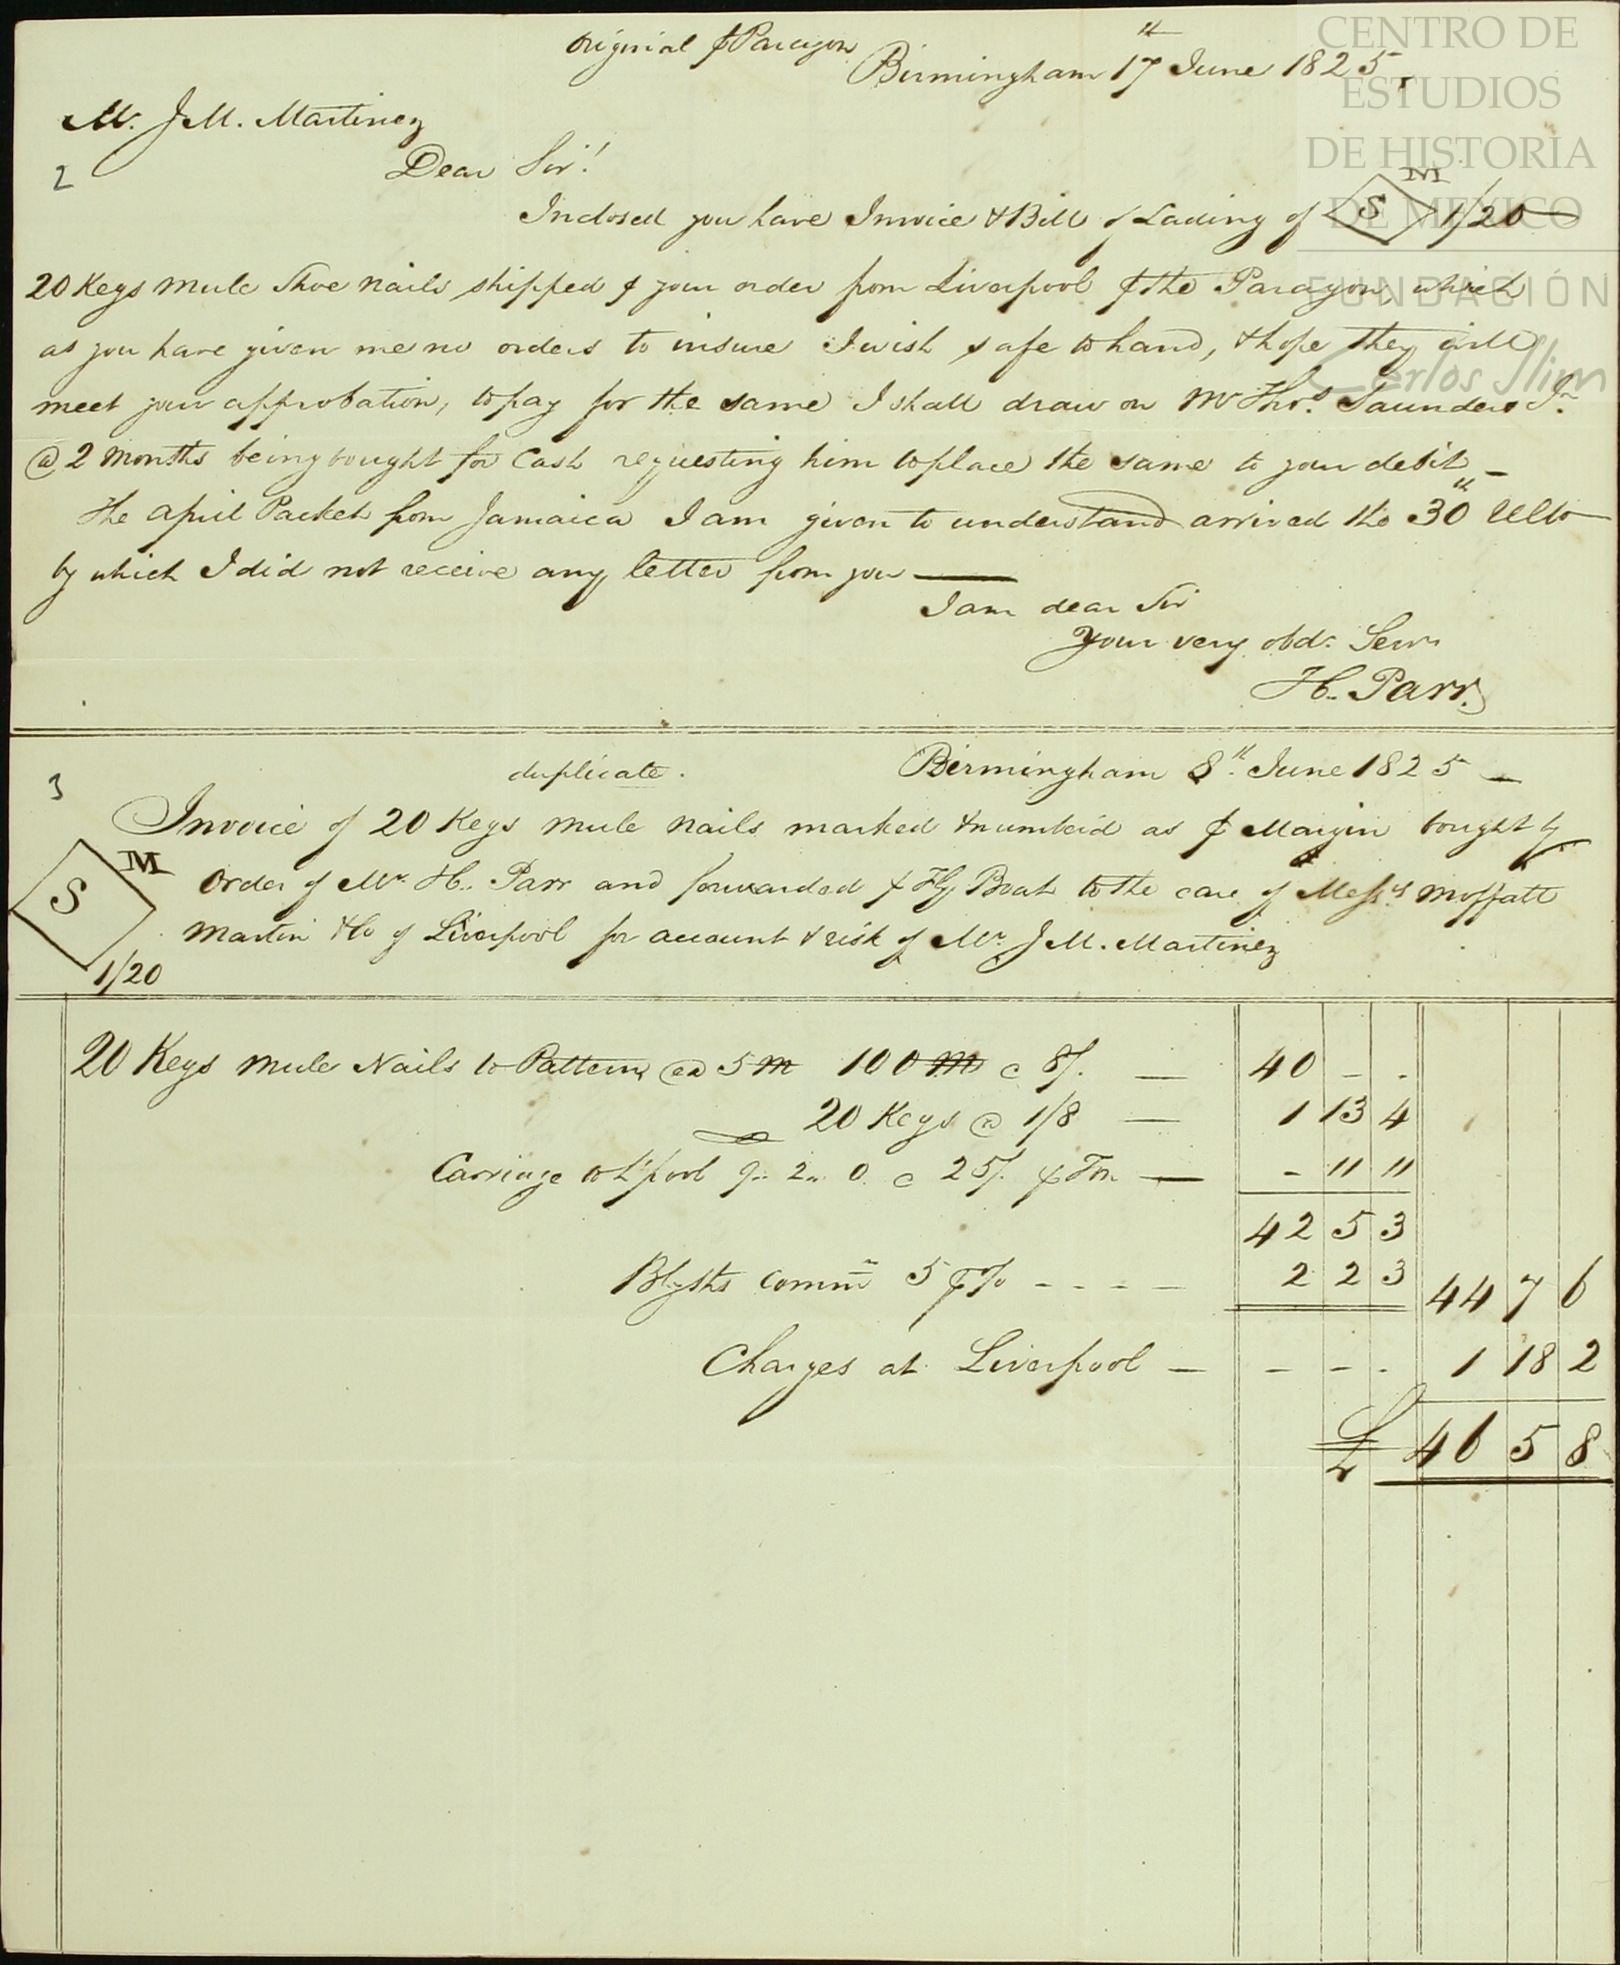 Original ⅌ Paragon
Birmingham 17th June 1825,
Mr. J M. Martinez
2
Dear Sir!
M
Inclosed you have Invoice & Bill of Lading of S 1/20
20 Kegs Mule Shoe Nails shipped ⅌ your order from Liverpool ⅌ the Paragon, which
as you have given me no orders to insure I wish safe to hand, & hope they will
meet your approbation, to pay for the same I shall draw on Mr Thos. Saunders Jr.
@ 2 Months being bought for Cash requesting him to place the same to your debit –
The April Packet from Jamaica I am given to understand arrived the 30th Ulto
by which I did not receive any letter from you ———
I am dear Sir
Your very obdt. Servt
H.. Parr.
3
duplicate.
Birmingham 8th. June 1825 —
Invoice of 20 Kegs Mule Nails marked & numberd as ⅌ Margin bought by
S M
Order of Mr. H.. Parr and forwarded ⅌ Fly Boat to the care of Messrs Moffatt
Martin & Co of Liverpool for account & risk of Mr. J M. Martinez
1/20
20 Kegs Mule Nails to Pattern ea 5 M 100 M @ 8/. — 40 - -
20 Kegs @ 1/8 — 1 13 4
Carriage to L'pool 9.. 2.. 0. @ 25/. ⅌ Ton — - 11 11
42 5 3
Blyths Commn 5 ⅌% - - - - 2 2 3 44 7 6
Charges at Liverpool — - - - 1 18 2
£ 46 5 8
CENTRO DE
ESTUDIOS
DE HISTORIA
DE MEXICO
FUNDACIÓN
Carlos Slim